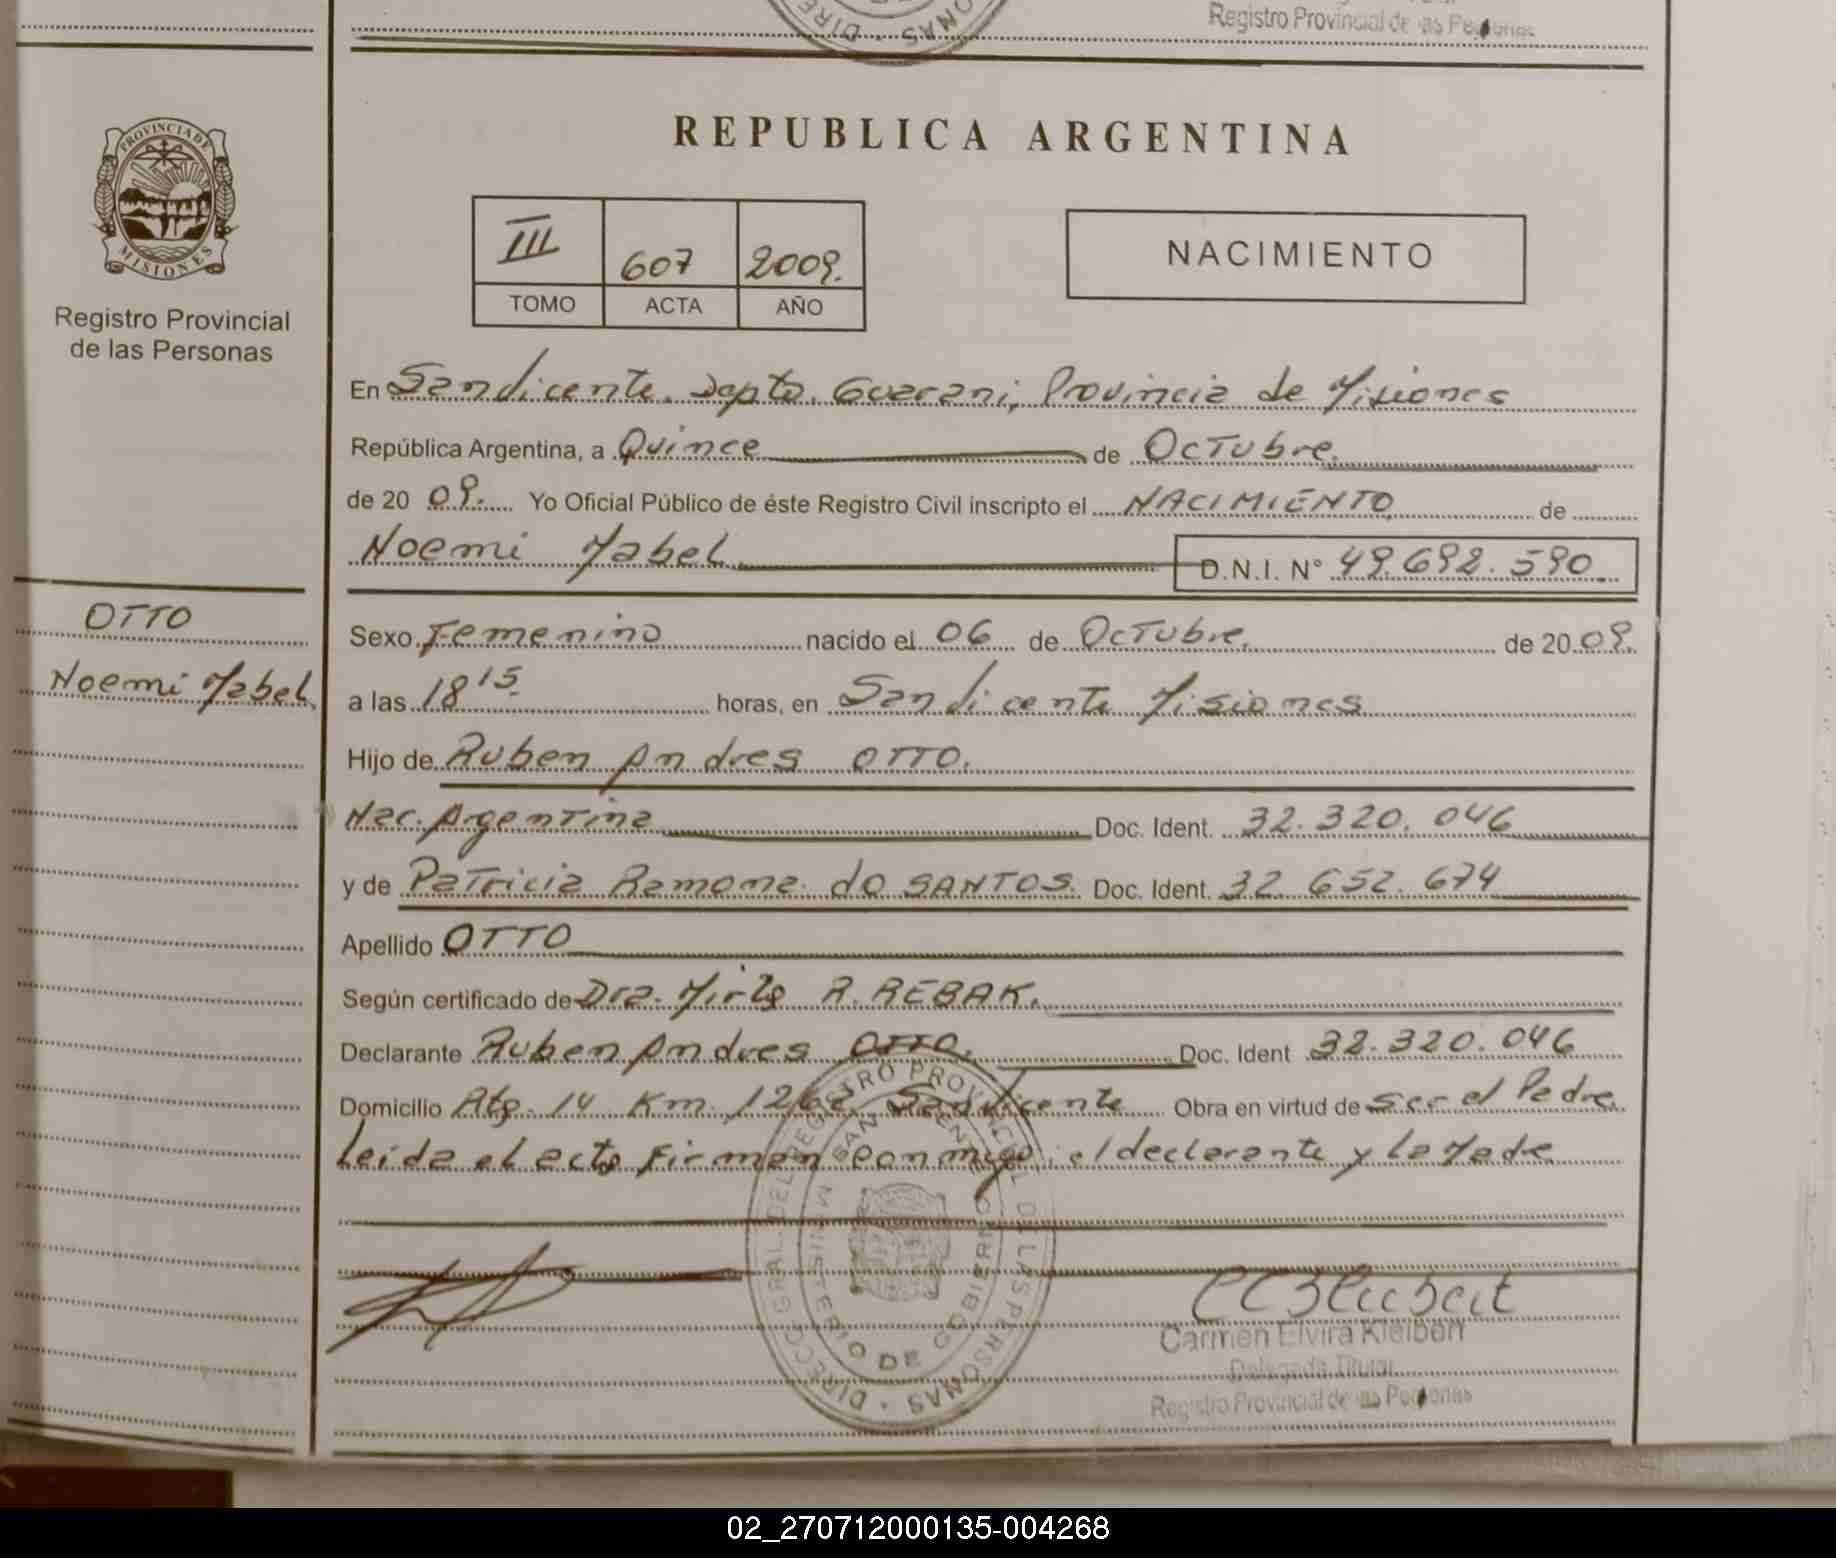 Registro Provincial de las Personas
DIRE · SONAS
REPUBLICA ARGENTINA
PROVINCIA DE
MISIONES
Registro Provincial
de las Personas
III 607 2009.
TOMO ACTA AÑO
NACIMIENTO
En Sandicente. Depto. Guarani, Provincia de Misiones
República Argentina, a Quince de Octubre.
de 20 09. Yo Oficial Público de éste Registro Civil inscripto el NACIMIENTO de
Noemi Mabel D.N.I. N° 49.692.590.
OTTO
Noemi Mabel
Sexo Femenino nacido el 06 de Octubre. de 20 09.
a las 18 15. horas, en Sandicente Misiones
Hijo de Ruben Andres OTTO.
Nac. Argentina Doc. Ident. 32.320.046
y de Patricia Ramona do SANTOS. Doc. Ident. 32.652.674
Apellido OTTO
Según certificado de Dra. Mirta R. REBAK.
Declarante Ruben Andres OTTO. Doc. Ident 32.320.046
Domicilio Rta. 14 Km. 1262 Sandicente Obra en virtud de ser el Padre.
Leida el acta firman conmigo; el declarante y la Made
DIRECC. GRAL. DEL REGISTRO PROVINCIAL DE LAS PERSONAS ·
MINISTERIO DE GOBIERNO
Carmen Elvira Kleibert
Delegada Titular
Registro Provincial de las Personas
02_270712000135-004268